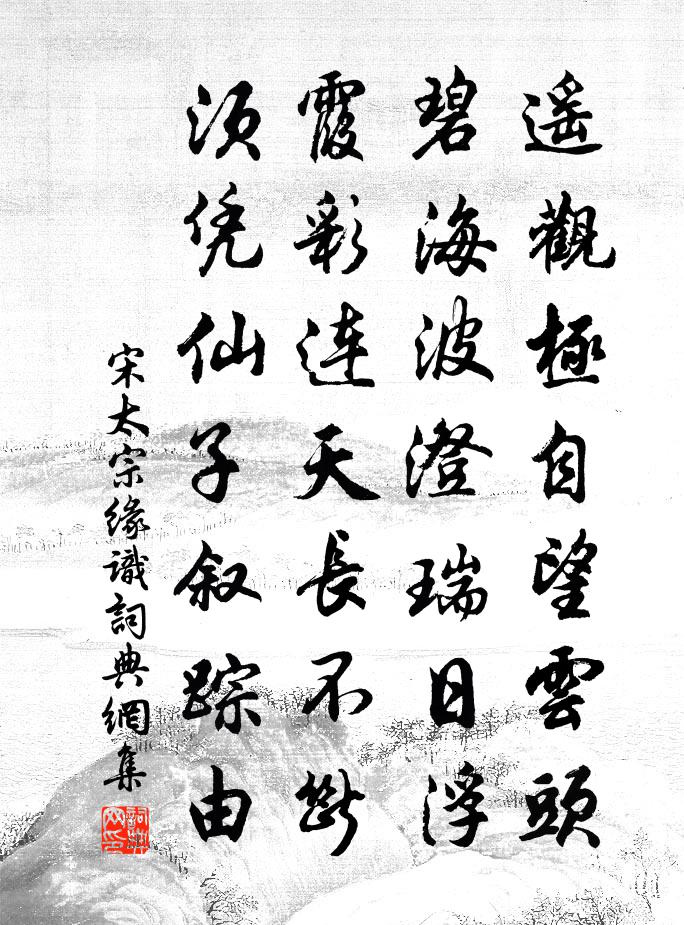 遥觀極自望雲頭
碧海波澄瑞日浮
霞彩連天長不斷
須凭仙子叙踪由
宋太宗緣識詞典網集
詞典网印